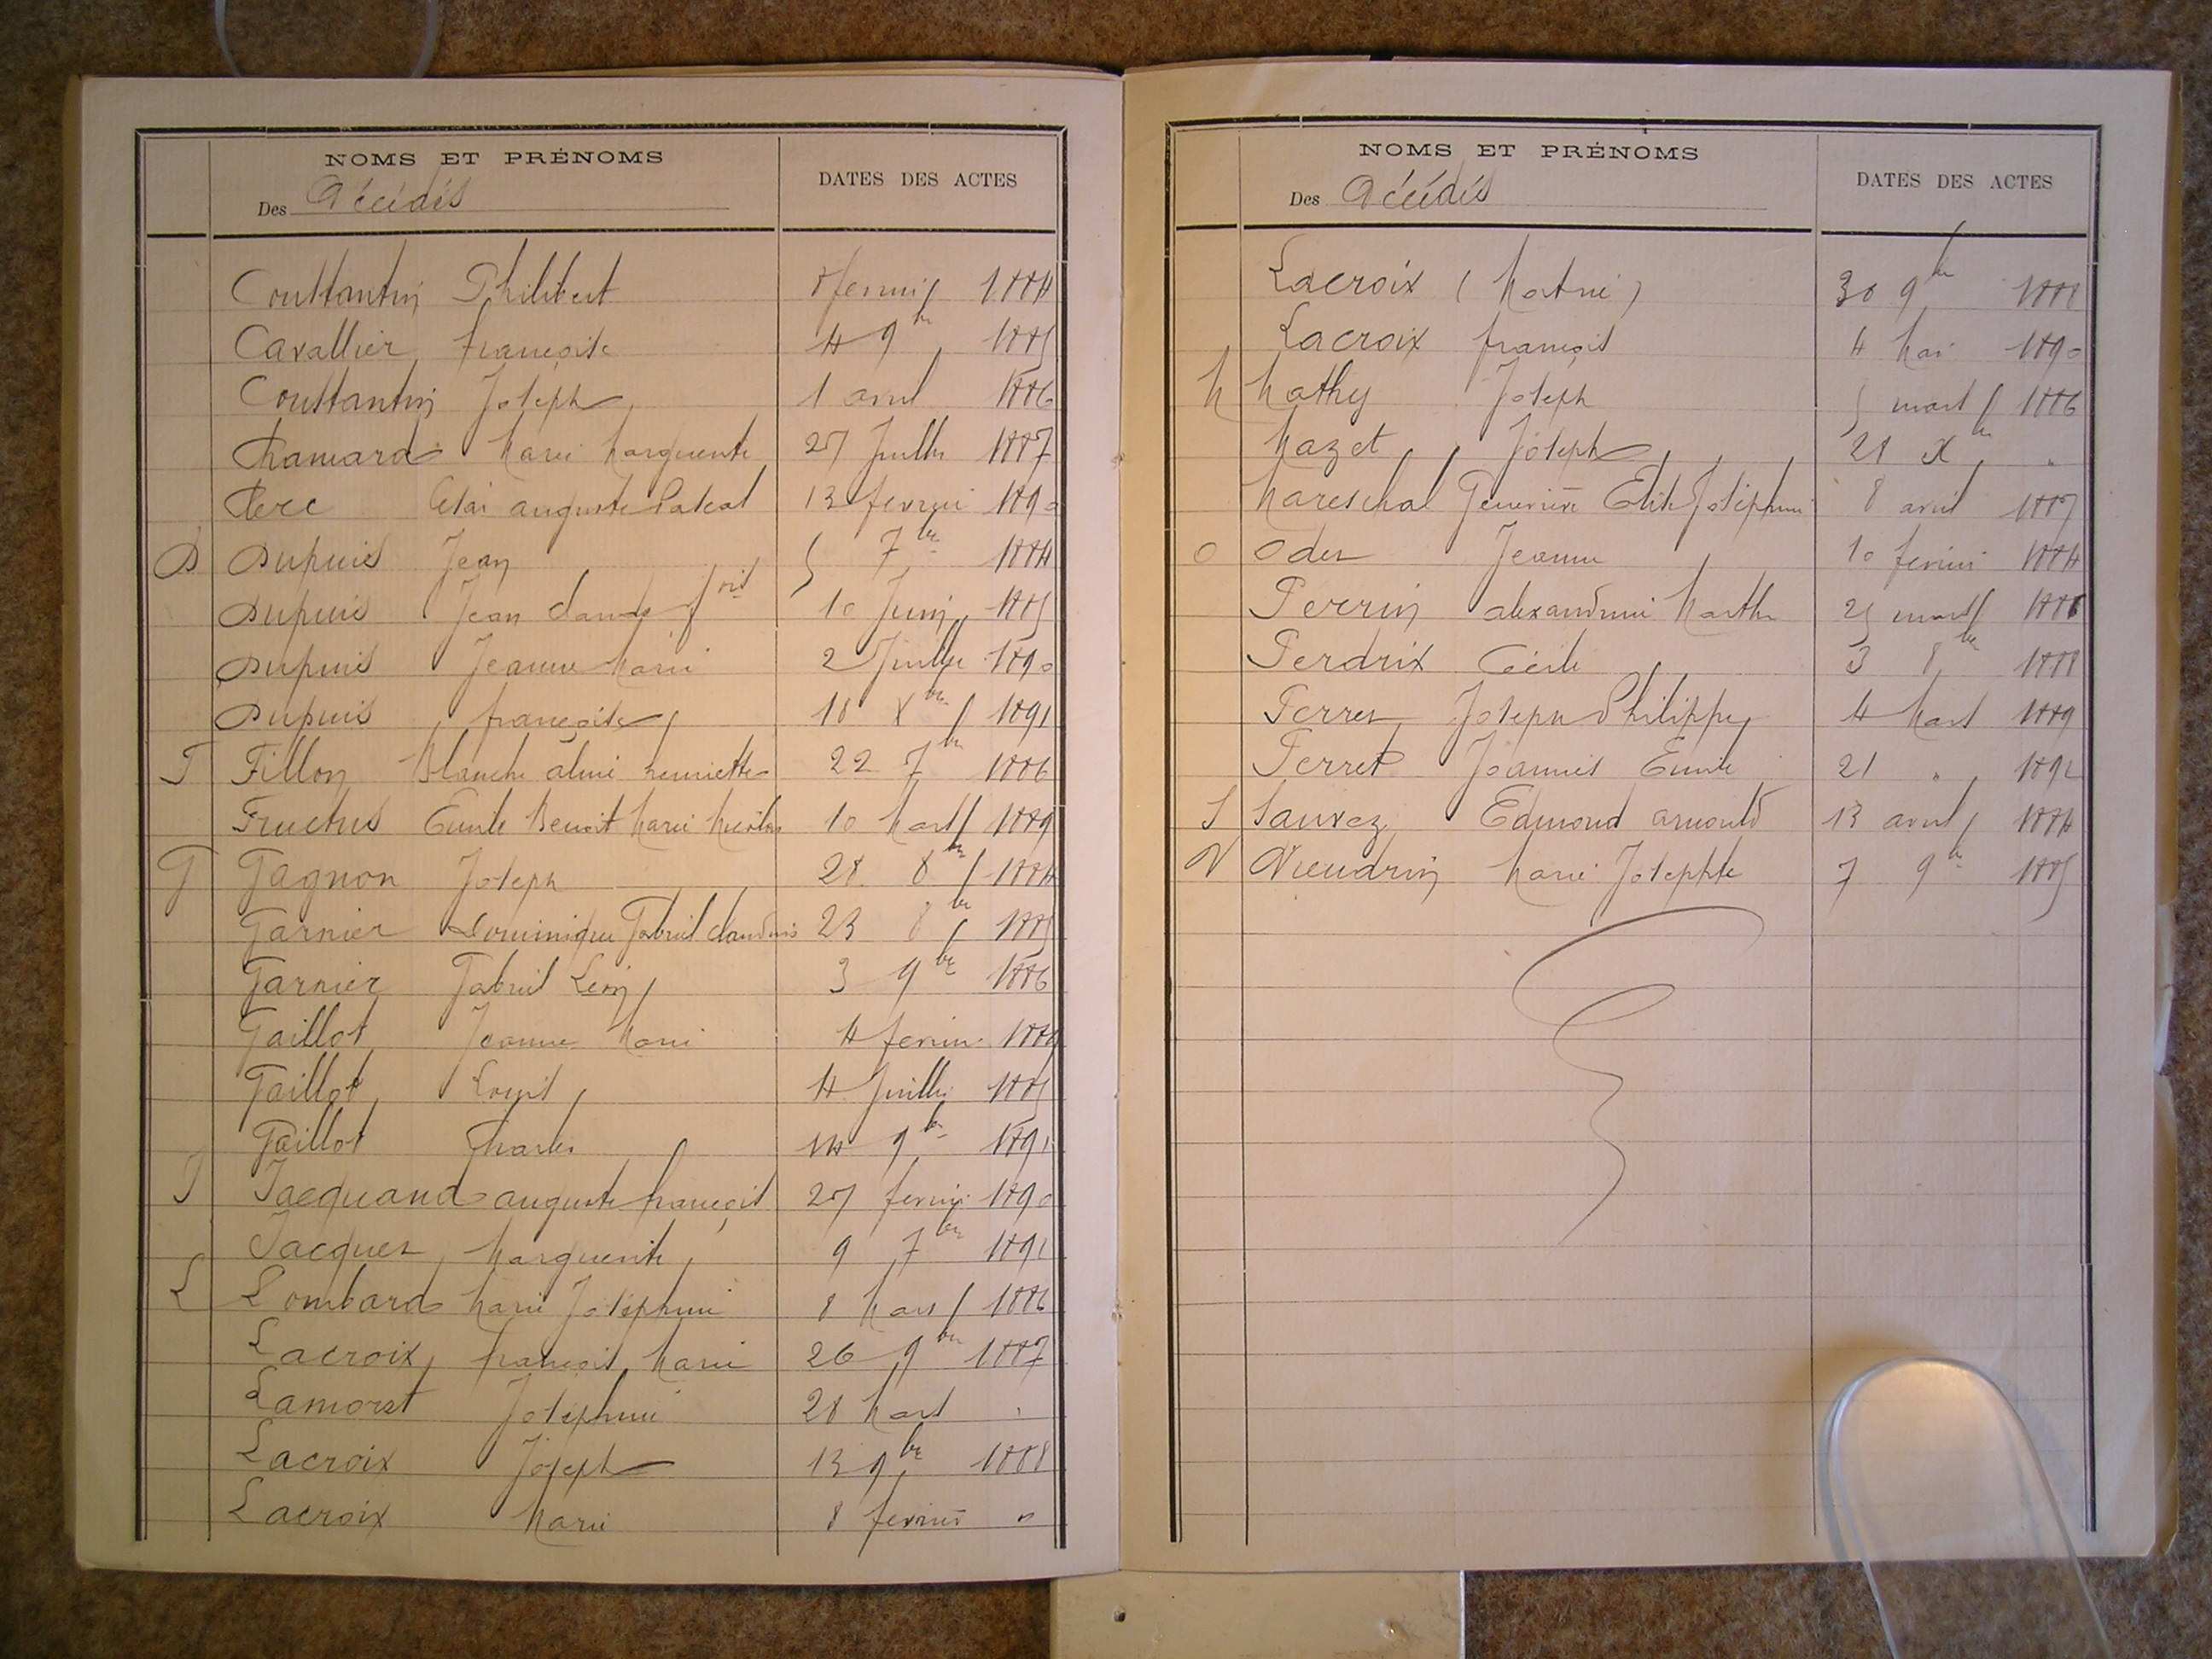 NOMS ET PRÉNOMS
Des Décédés
DATES DES ACTES
Couttantin Philibert 8 fevrier 1884
Cavallier françoise 4 9bre 1885
Couttantin Joseph 1 avril 1886
Chamard Marie Marguerite 27 Juillet 1887
Clerc auguste Pascal 13 fevrier 1890
D Dupuis Jean 5 7bre 1884
Dupuis Jean claude fois 10 Juin 1885
Dupuis Jeanne Marie 2 Juillet 1890
Dupuis françoise 18 Xbre 1891
F Fillon Blanche henriette 22 7bre 1886
Fructus Emile Benoit Marie Nicolas 10 Mars 1889
G Gagnon Joseph 28 8bre 1884
Garnier Dominique Gabriel 23 8bre 1885
Garnier Gabriel Léon 3 9bre 1886
Gaillot Jeanne Marie 4 fevrier
Gaillot Louis 4 Juillet 1885
Gaillot Charles 14 9bre 1891
J Jacquand auguste françois 27 fevrier 1890
Jacques Marguerite 9 7bre 1891
L Lombard Marie Joséphine 8 Mars 1886
Lacroix françois Marie 26 9bre 1887
Lamorst Joséphine 28 Mars "
Lacroix Joseph 13 9bre 1888
Lacroix Marie 8 fevrier "
NOMS ET PRÉNOMS
Des Décédés
DATES DES ACTES
Lacroix ( ) 30 9bre 1888
Lacroix françois 4 Mai 1890
M Mathy Joseph 5 mars 1886
Mazet Joseph 28 Xbre "
Mareschal Geneviève Elise Joséphine 8 avril 1887
O Oder Jeanne 10 fevrier 1884
Perrin alexandrine Marthe 25 mars 1886
Perdrix Cécile 3 8bre 1888
Perret Joseph Philippe 4 Mars 1889
Perret Joannès Emile 21 " 1892
S Sauvez Edmond arnould 13 avril 1884
V Vieudrin Marie Josephte 7 9bre 1885